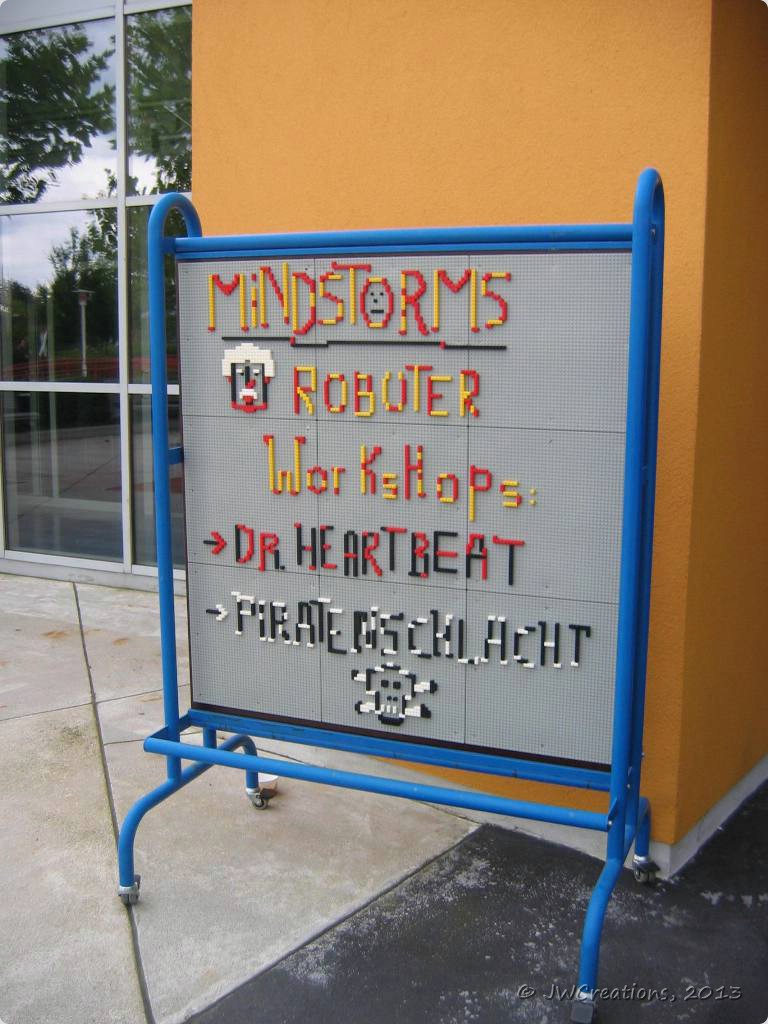 MiNDSTORMS
ROBOTER
WorKsHops:
→ DR. HEARTBEAT
→ PIRATENSCHLACHT
© JWCreations, 2013